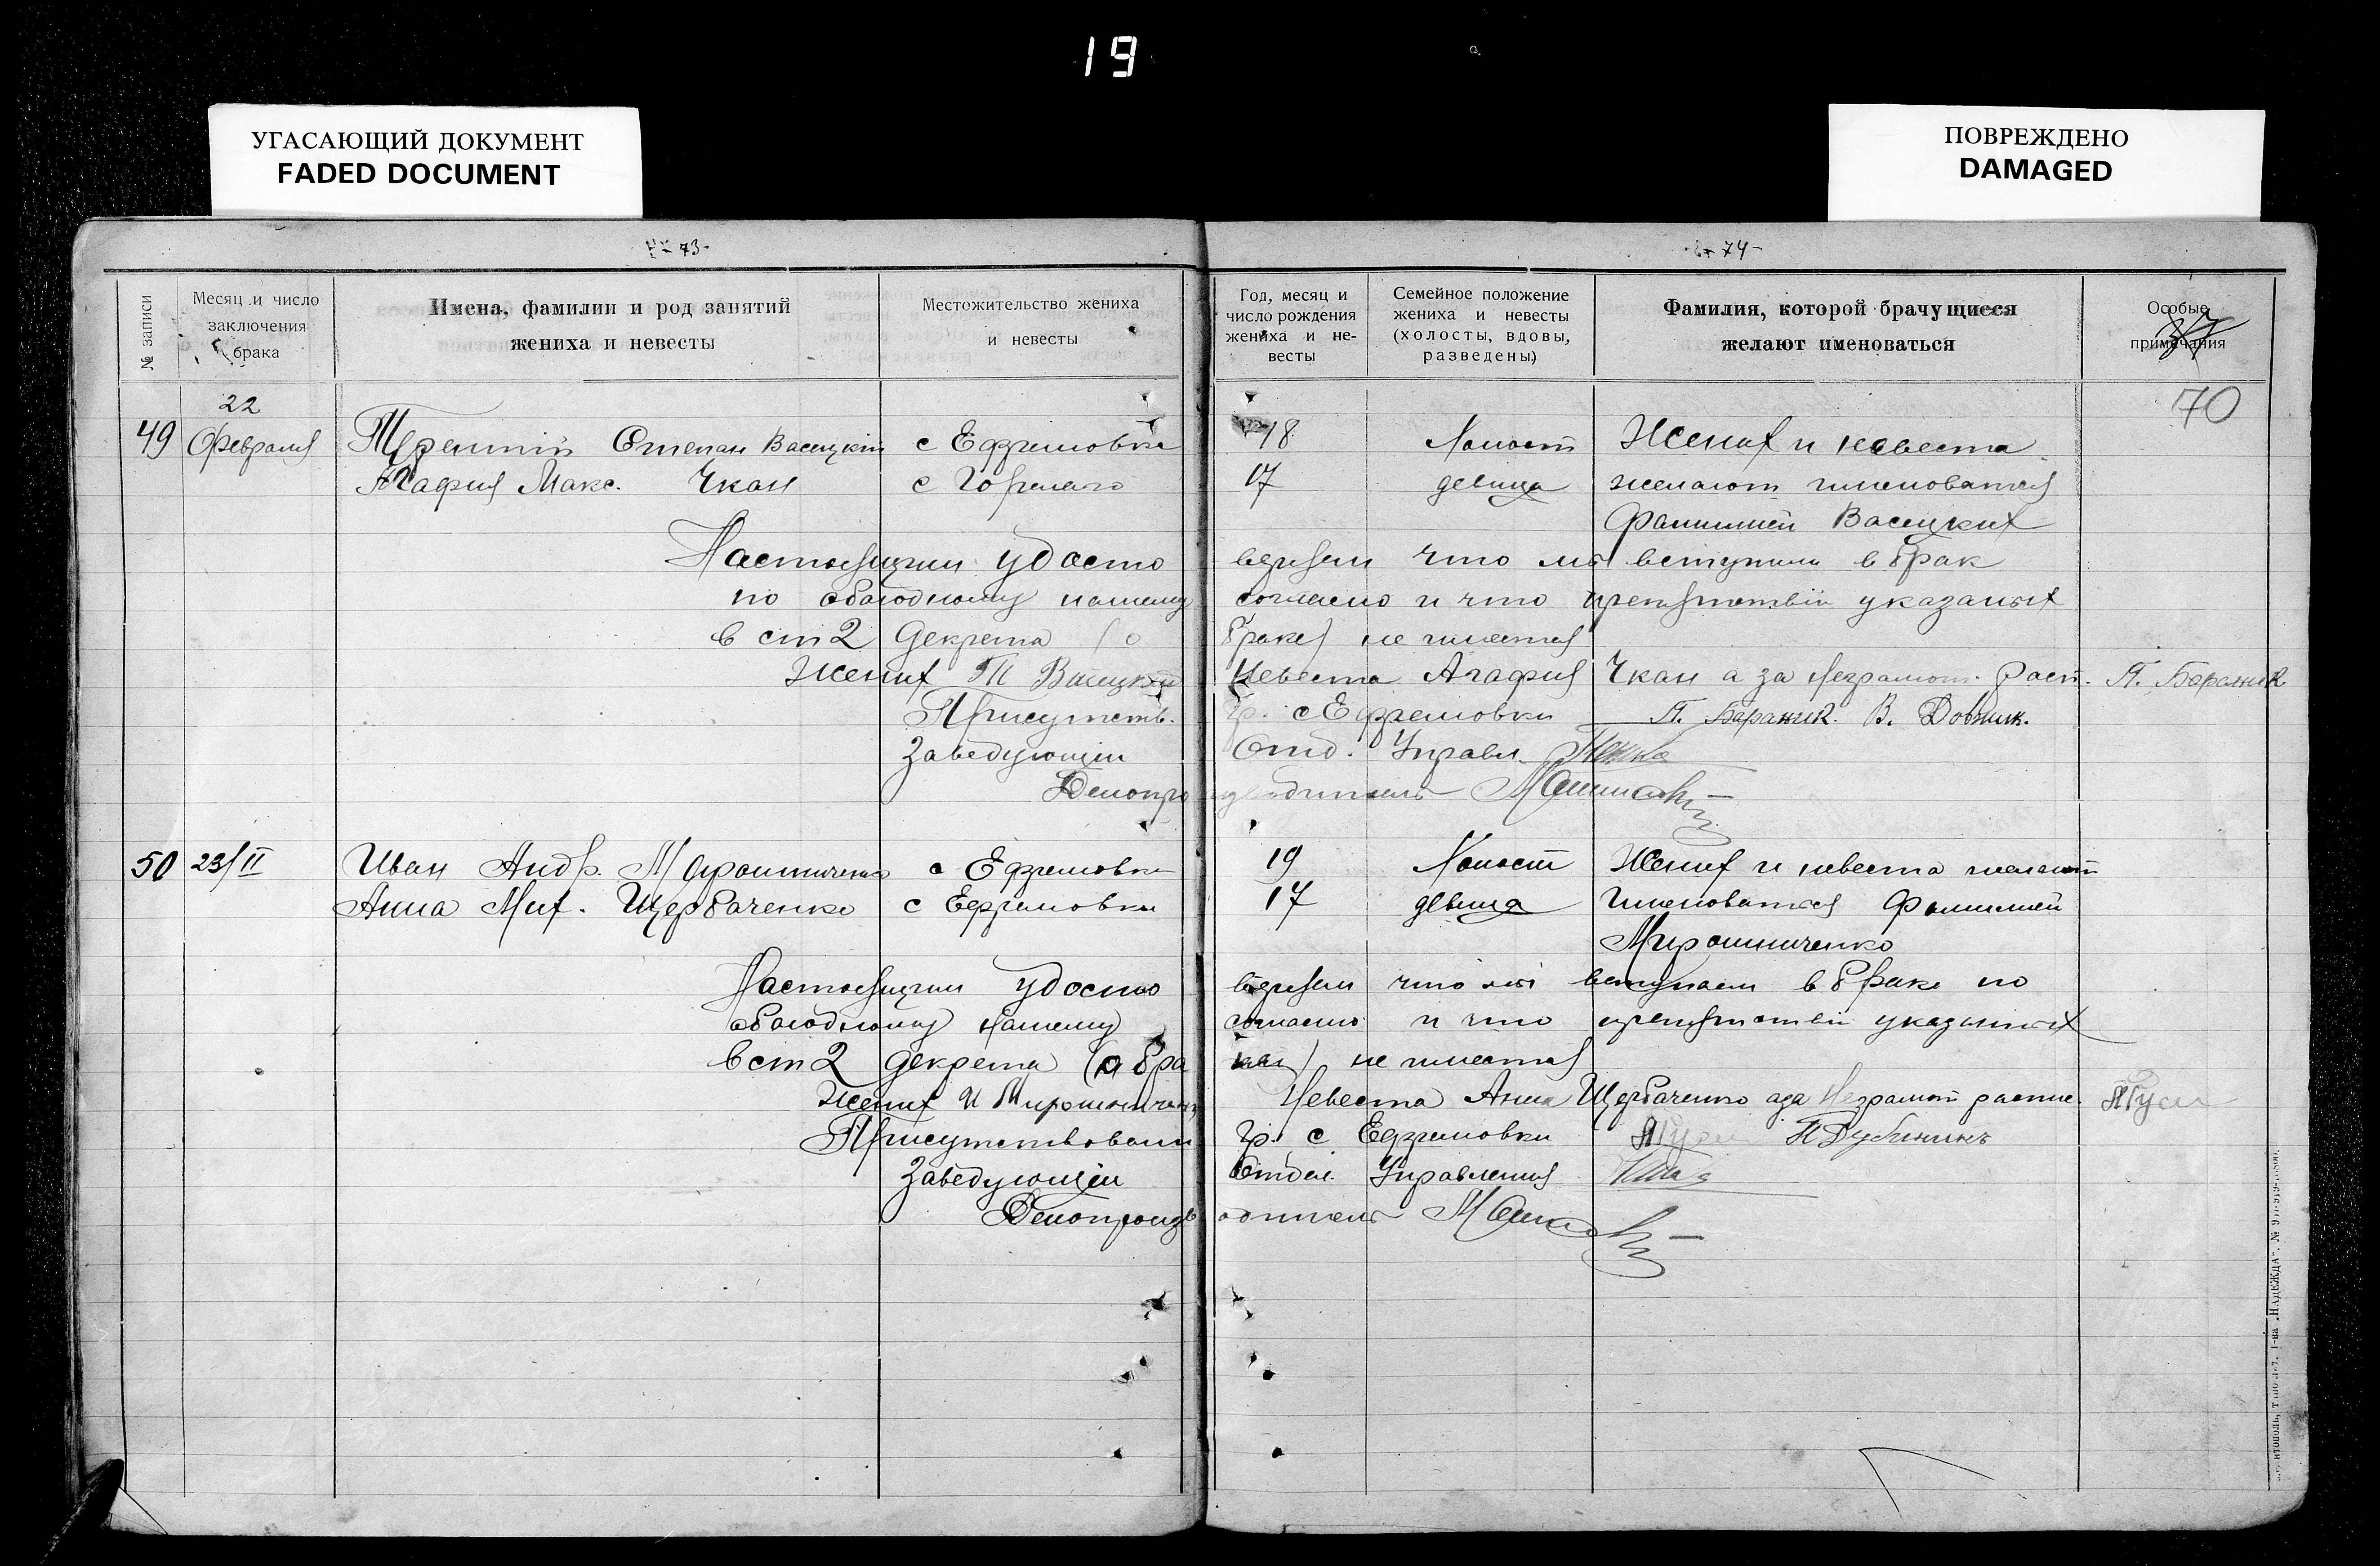 19
УГАСАЮЩИЙ ДОКУМЕНТ
FADED DOCUMENT
ПОВРЕЖДЕНО
DAMAGED
73-
74-
№ записи
Месяц и число
заключения
брака
Имена, фамилии и род занятий
жениха и невесты
Местожительство жениха
и невесты
Год, месяц и
число рождения
жениха и не-
весты
Семейное положение
жениха и невесты
(холосты, вдовы,
разведены)
Фамилия, которой брачущиеся
желают именоваться
Особые
примечания
70
22
49 Февраля Терентий Степан Васецкий с Ефремовка 18 Холост Жених и невеста
Агафия Макс. Чкан с Горелаго 17 девица желают именоватся
Фамилией Васецких
Настоящим удосто веряем что мы вступили в брак
по обоюдному нашему согласию и что препятствій указаных
в ст 2 Декрета (о браке) не имеется
Жених Т Васецкий Невеста Агафия Чкан а за неграмот. расп. П. Бараник
Присутств. гр. с Ефремовки П. Бараник. В. Довник.
Заведующій Отд. Управл.
Делопро изводитель
50 23/II Иван Андр. Мирошниченко с Ефремовка 19 Холост Жених и невеста желают
Анна Мих. Щербаченко с Ефремовки 17 девица Именоватся Фамилией
Мирошниченко
Настоящим удосто веряем что мы вступаем в браке по
обоюдному нашему согласию и что препятствій указанных
в ст 2 декрета (о бра ках) не имеется
Жених И Мирошничен Невеста Анна Щербаченко а за Неграмот распис.
Присутствовали гр. с Ефремовки П Дубининъ
Заведующій Отдел. Управления
Делопроизв одитель